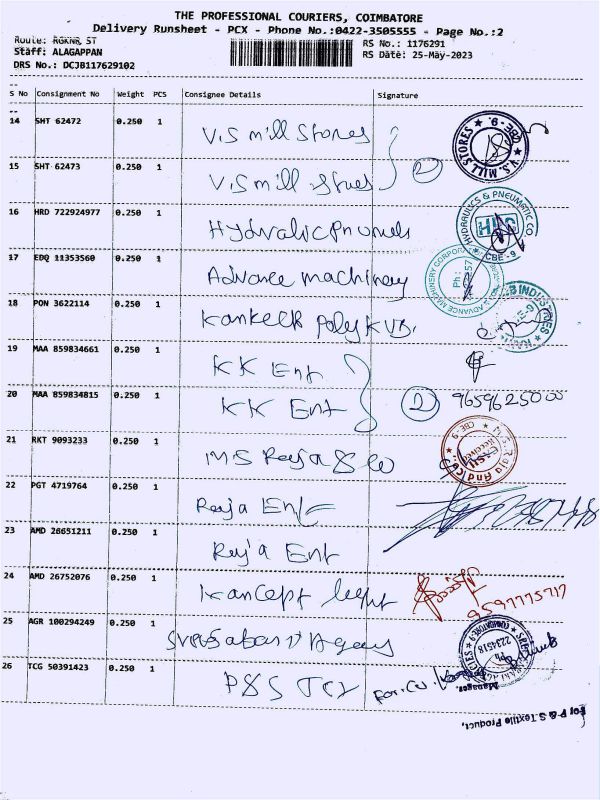 THE PROFESSIONAL COURIERS, COIMBATORE
Delivery Runsheet - PCX - Phone No.:0422-3505555 - Page No.:2
Route: RGKNR, ST
RS No.: 1176291
Staff: ALAGAPPAN
RS Date: 25-May-2023
DRS No.: DCJB117629102
S No Consignment No Weight PCS Consignee Details Signature
14 SHT 62472 0.250 1 V.S mill Stores
V.S. MILL STORES CBE-9
15 SHT 62473 0.250 1 V.S mill Stores 2
16 HRD 722924977 0.250 1
HYDRAULICS & PNEUMATIC CO CBE-9
17 EDQ 11353560 0.250 1 Advance machinery
ADVANCE MACHINERY CORPORATION Ph :
18 PON 3622114 0.250 1
INDUSTRIES
19 MAA 859834661 0.250 1 KK Ent
20 MAA 859834815 0.250 1 KK Ent 2 9659625000
21 RKT 9093233 0.250 1 MS Raja & Co
M.S. Raja And Co. CBE-9
22 PGT 4719764 0.250 1 Raja Ent
23 AMD 26651211 0.250 1 Raja Ent
24 AMD 26752076 0.250 1
9597775717
25 AGR 100294249 0.250 1
2234518 Ph
26 TCG 50391423 0.250 1 P&S Tex
Manager.
For P & S Textile Product,